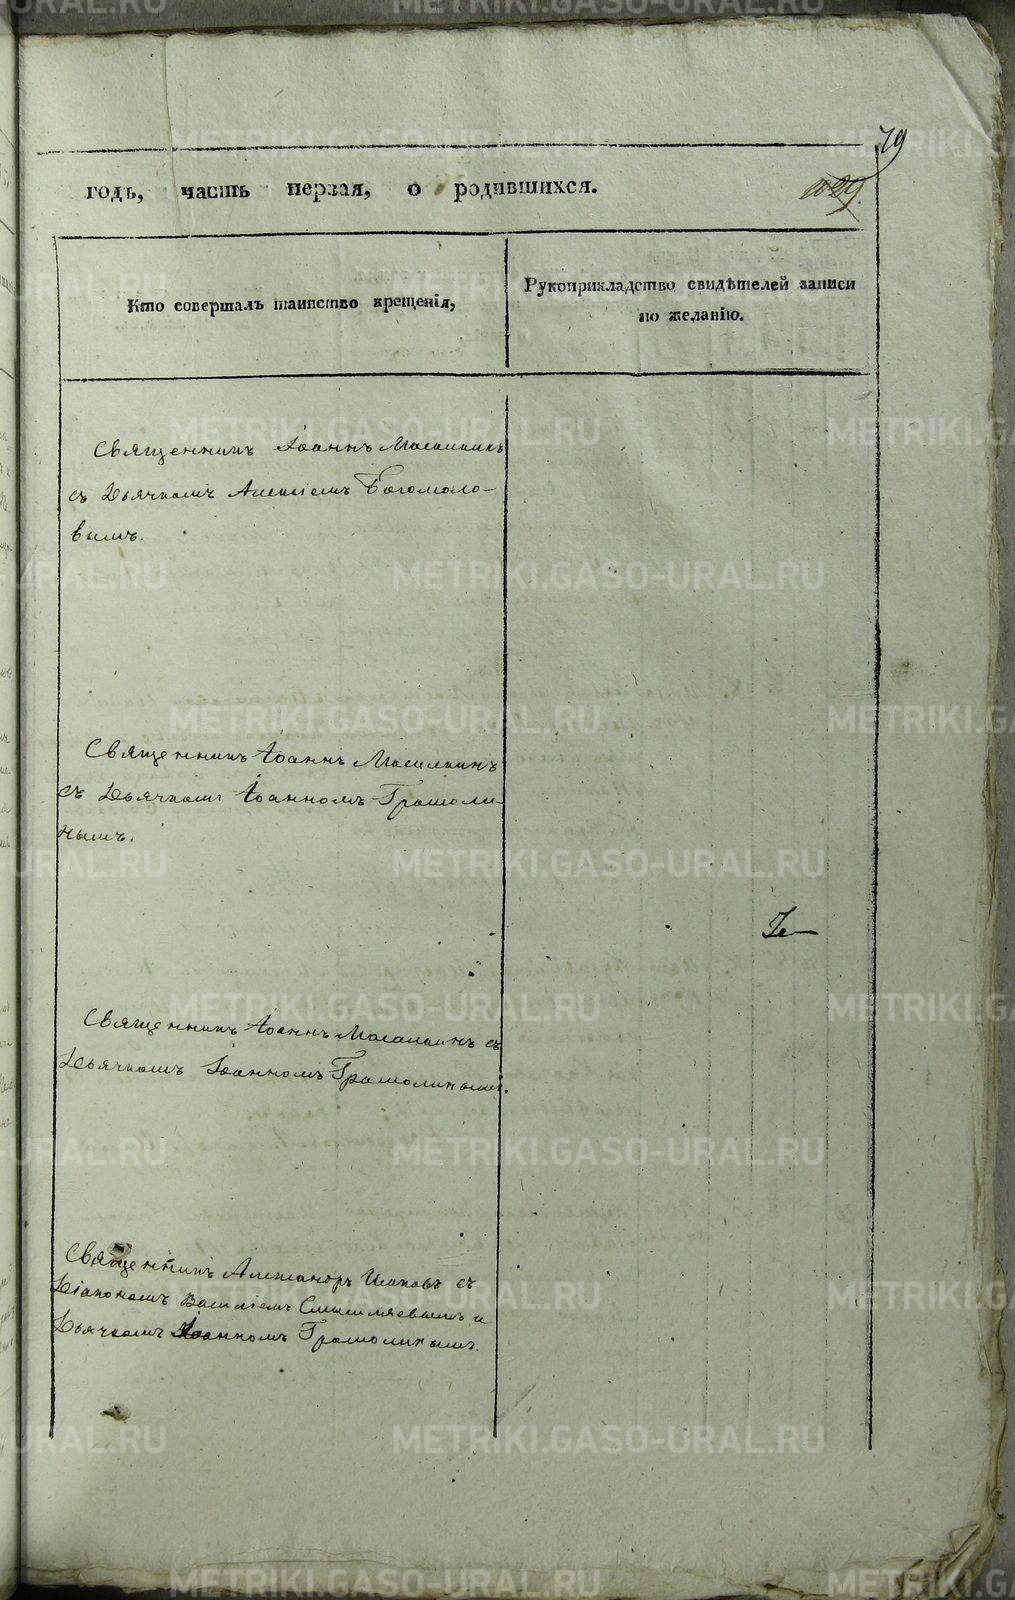 79
годъ, часть первая, о родившихся.
Кто совершалъ таинство крещенія,
Рукоприкладство свидѣтелей записи
по желанію.
Священникъ Іоаннъ Масалкинъ
съ Дьячкомъ Алексіемъ Богомоло-
вымъ.
Священникъ Іоаннъ Масалкинъ
съ Дьячкомъ Іоанномъ Грамоли-
нымъ.
Священникъ Іоаннъ Масалкинъ съ
Дьячкомъ Іоанномъ Грамолинымъ.
Священникъ Александръ съ
Діакономъ Василіемъ и
Дьячкомъ Іоанномъ Грамолинымъ.
METRIKI.GASO-URAL.RU